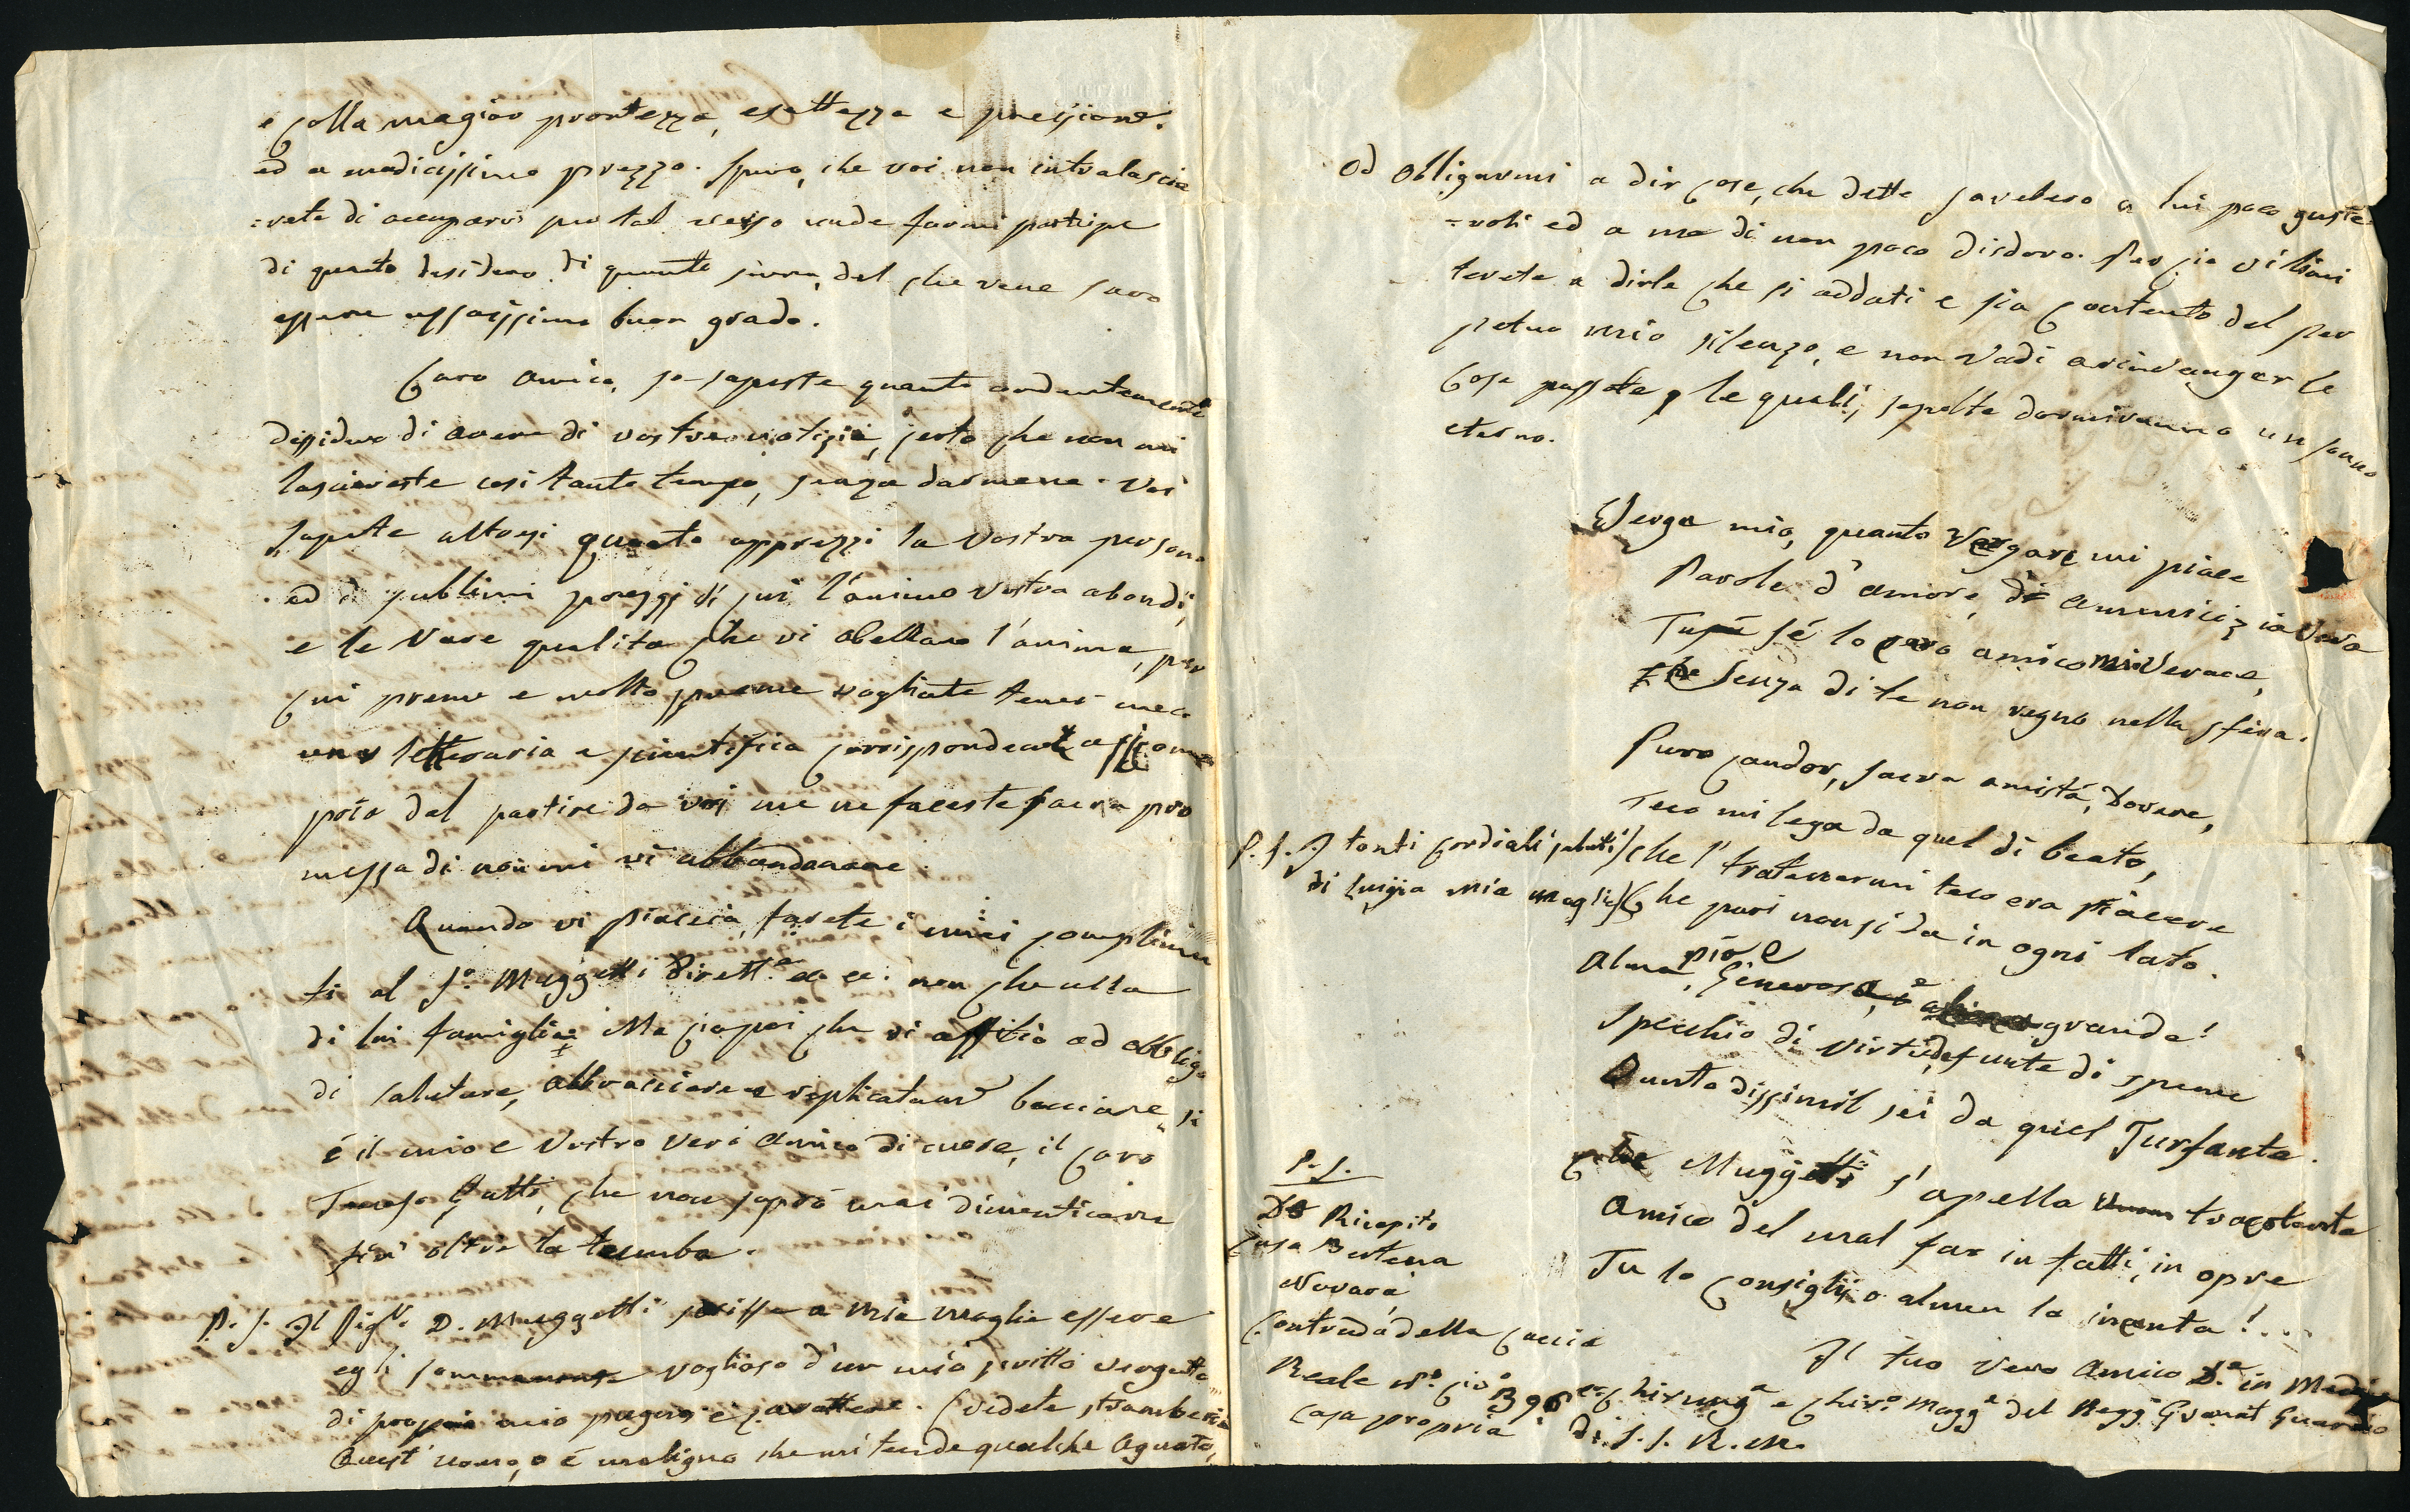 e colla magior prontezza, esattezza e precisione.
ed a modicissimo prezzo. Spero, che voi non intralascie
:rete di occuparvi per tal verso onde farmi partecipe
di quanto desidero di quanto sopra, del che vene saro
eppure assaissimo buon grado.
Caro Amico, se sapeste quanto ardentemente
dessidero di avere di vostre notizie, certo che non mi
lasciereste cosi tanto tempo, senza darmene. Voi
sapete altresi quanto apprezzi la vostra persona
ed i sublimi preggj di cui l'animo vostro abondi,
e le rare qualita che vi abellano l'anima, per
cui preme e molto preme vogliate tener meco
una letteraria e scientifica corrispondenza
pria del partire da voi me ne faceste sacra pro
messa di non mi vi abbandonare
Quando vi piaccia, farete i miei complimen
ti al S.r Muggetti Dirett.e non che alla
di lui famiglia. Ma cio poi che vi affitio ad obbligo
di salutare, abbracciare e replicatam.e bacciare si
é il mio e vostro vero amico di cuore, il caro
Gatti, che non sapró mai dimenticare
fin oltre la tomba.
P. S. Il Sig.r D. Muggetti scrisse a mia moglie essere
egli sommamente voglioso d'un mio scritto vergato
di proprio mio pugno e carattere. Vedete stramberia
Quest'uomo, o é maligno che mi tende qualche aguato,
od obligarmi a dir cose, che dette sarebbero a lui poco guste
=voli ed a me di non poco disdoro. Per cio vi limi
terete a dirle che si addati e sia contento del per
petuo mio silenzo, e non vadi a rinvangar le
cose passate le quali, sepolte dormiranno un sonno
eterno.
Verga mio, quanto vergare mi piace
Parole d'amore, di ammicizia vera
Tu sé lo vero amico mio verace,
Che senza di te non regno nella sfera.
Puro candor, sacra amistá, dovere,
Teco mi lega da quel di beato,
che l'tratenermi teco era piacere
Che pari non si da in ogni lato.
P. S. I tanti cordiali saluti
di Luigia mia moglie
Alma pia e Generosa, e grande!
Specchio di virtude, fonte di speme
Quanto dissimil sei da quel Furfante.
Che Muggetti s'apella tracotante
Amico del mal far in fatti, in opre
Tu lo consiglj o almen lo inventa!...
Il tuo vero Amico D.e in Medic
e Chirurg.a e Chir.o Magg.e del Regg.o Granat Guardie
di S. S. R. M.
P. S.
Do Ricapito
Casa Bertena
Novara
Contrada della Caccia
Reale N.o civ.o 396
casa propria